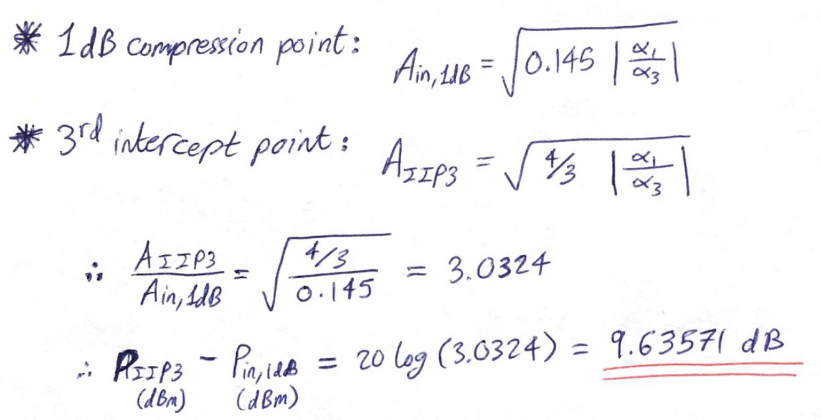 * 1dB compression point: A_in,1dB = √(0.145 |α₁/α₃|)
* 3rd intercept point: A_IIP3 = √(4/3 |α₁/α₃|)
∴ A_IIP3/A_in,1dB = √((4/3)/0.145) = 3.0324
∴ P_IIP3 (dBm) - P_in,1dB (dBm) = 20 log (3.0324) = 9.63571 dB